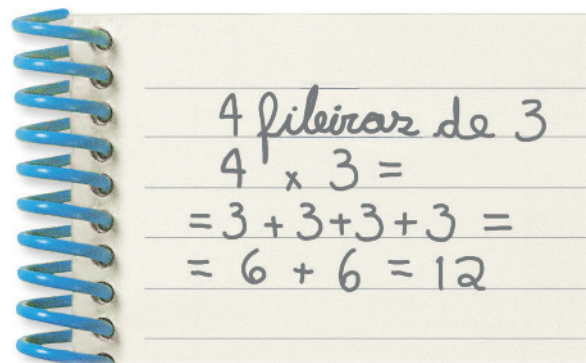 4 fileiras de 3
4 x 3 =
= 3 + 3 + 3 + 3 =
= 6 + 6 = 12